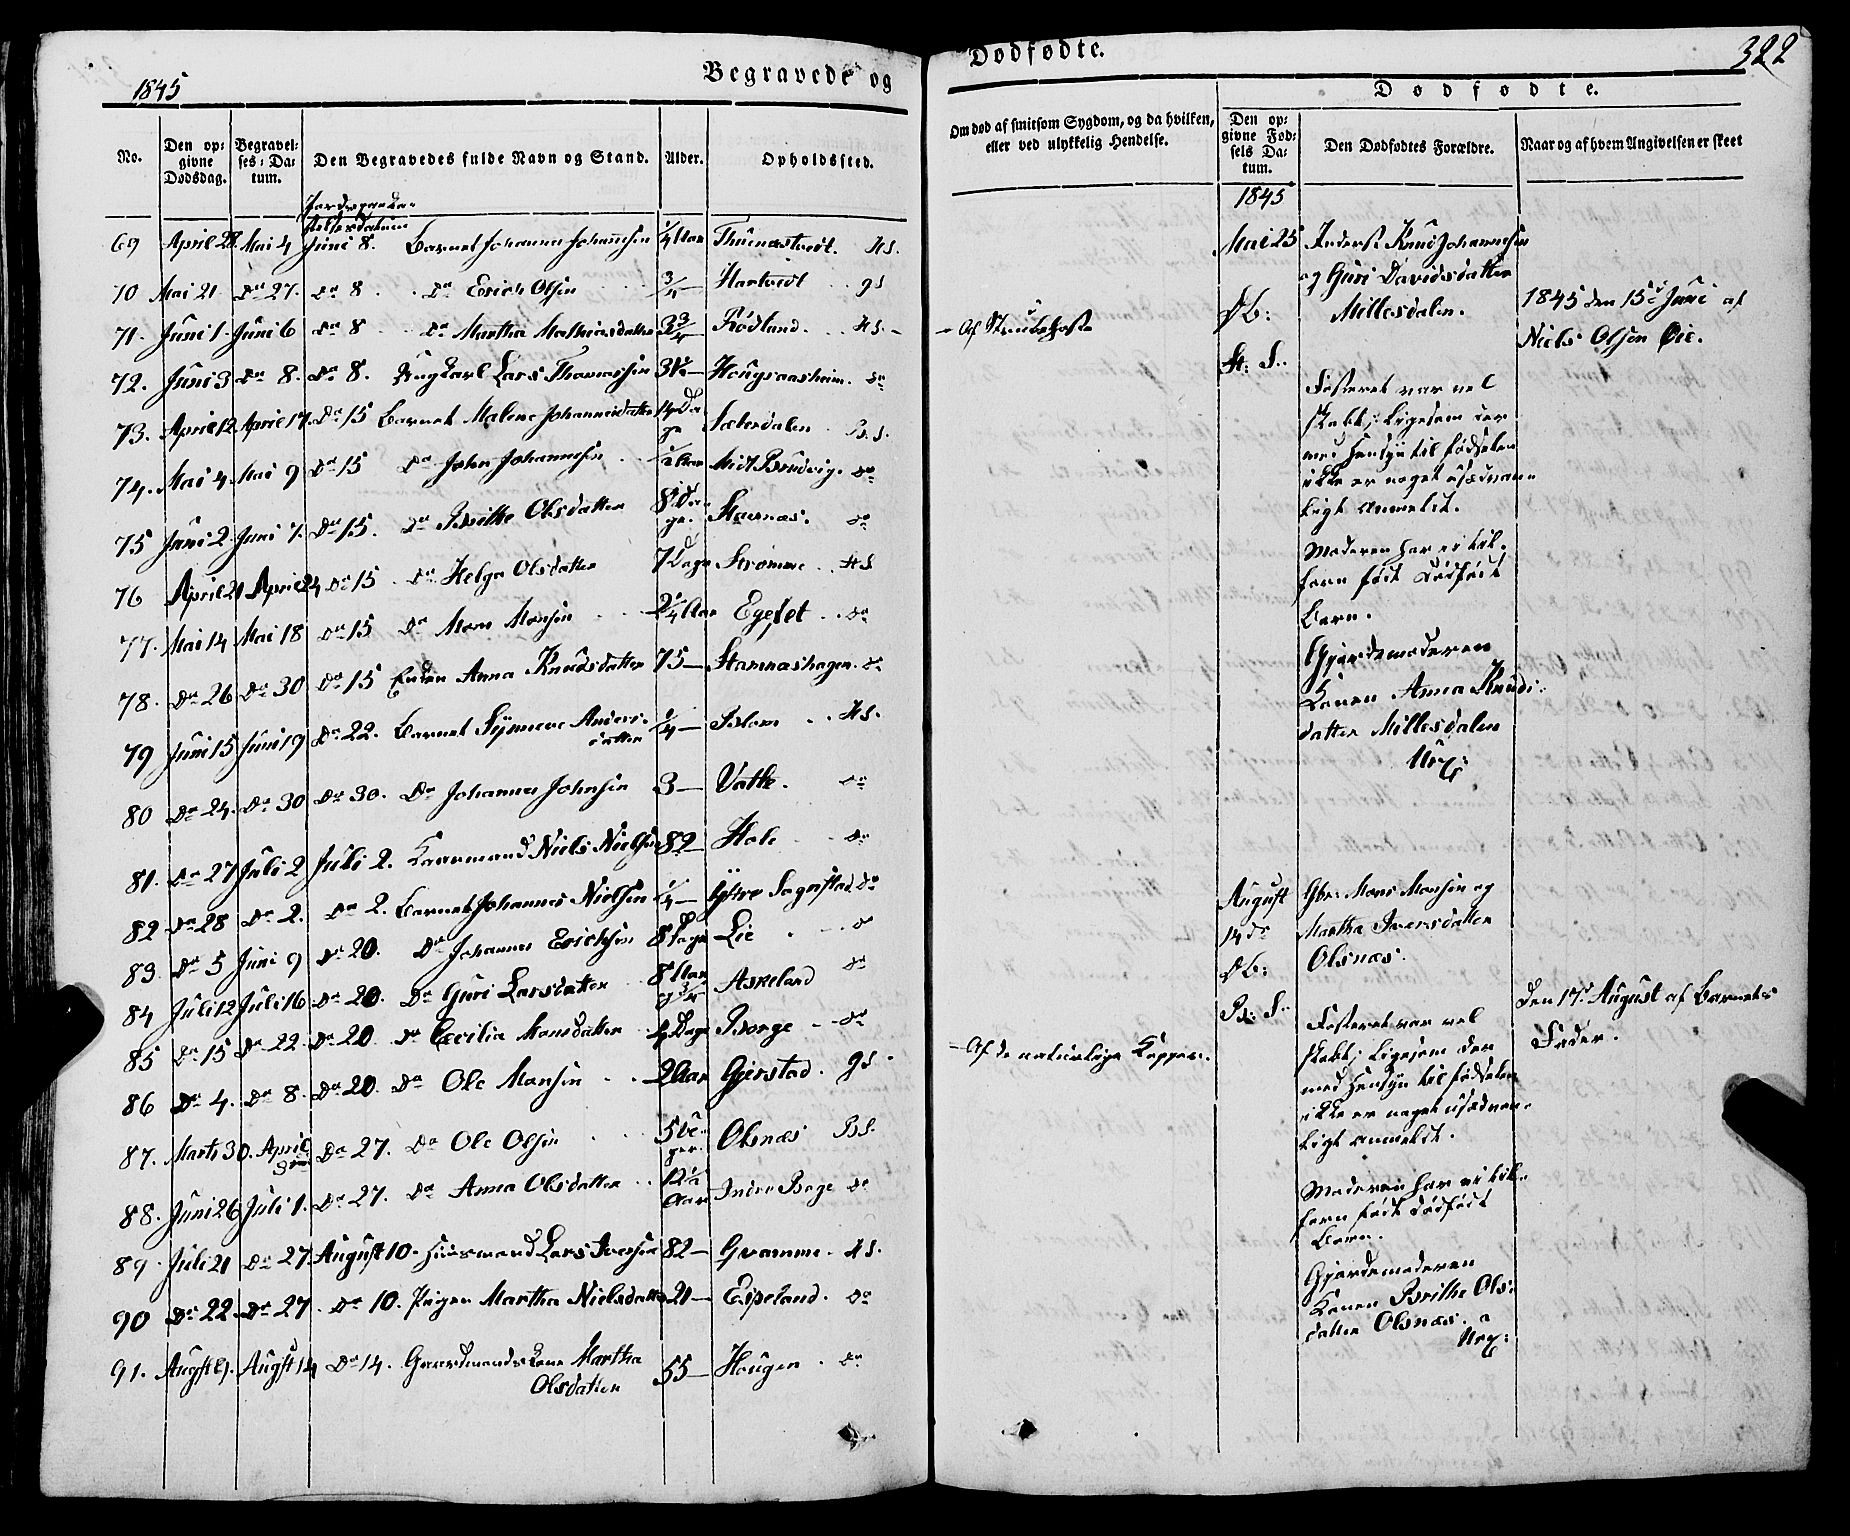 1845
Begravede og
No.
Den opgivne Dødsdag.
Begravelses-Datum.
Den Begravedes fulde Navn og Stand.
Alder.
Opholdssted.
69 April 28 Mai 4 Juni 8. Barnet Johannes Johannesen 1/4 Aar Thunæstvedt. Hs.
70 Mai 21 Do 27. Do 8 Do Erich Olsen 3/4 Hartvedt gs
71. Juni 1 Juni 6 Do 8 Do Martha Mathiasdatter 3 3/4 Rødland. Hs.
72. Juni 3 Do 8. Do 8. Ungkarl Lars Thomassen Hougsaasheim. Do
73. April 12 April 17 Do 15 Barnet Malene Johannesdatter 14 Dage Sæterdalen Bs.
74. Mai 4 Mai 9 Do 15 Do John Johannesen 1/2 Aar Midt Brudvig. Do
75 Juni 2 Juni 7. Do 15. Do Brithe Olsdatter 8 Dage. Stavnæs. Do
76 April 21 April 24 Do 15 Do Helga Olsdatter 7 Dage Strømme Hs
77. Mai 14 Mai 18 Do 15 Do Mons Monsen 2 1/4 Aar Egeset Do
78. Do 26 Do 30 Do 15 Enken Anna Knudsdatter 75 — Stamneshagen. Do
79 Juni 15 Juni 19 Do 22. Barnet Synneve Anders-
datter 1/4 — Blom Hs.
80 Do 24. Do 30 Do 30. Do Johannes Johnsen 3 — Vatle. Do
81. Do 27 Juli 2 Juli 2. Kaarmand Niels Nielsen 82 — Hole Do
82 Do 28 Do 2. Do 2. Barnet Johannes Nielsen 1/4 — Ystre Do
83. Do 5 Juni 9 Do 20. Do Johannes Erichsen 8 Dage Lie Do
84 Juli 12 Juli 16 Do 20. Do Guri Larsdatter 8 Aar Askeland Do
85 Do 15 Do 22. Do 20. Do Cecilia Monsdatter 4 Dage Borge Do
86 Do 4. Do 8. Do 20. Do Ole Monsen 2 Aar Gjerstad. gs.
87. Marts 30. April Do 27. Do Ole Olsen 5 Uger. Olsnæs Bs.
88. Juni 26 Juli 1. Do 27. Do Anna Olsdatter 12 1/2 Aar Indre Boge Do
89 Juli 21 Do 27 August 10. Huusmand Lars Iversen 82 — Gramme. Hs.
90 Do 22. Do 27 Do 10. Pigen Martha Nielsdatter 21 — Espeland. Do
91. August 9. August 14 Do 14. Gaardmandskone Martha
Olsdatter 55 — Hougen Do
Dødfødte.
322
Om død af smitsom Sygdom, og da hvilken, eller ved ulykkelig Hendelse.
Dødfødte.
Den opgivne Fødsels Datum.
Den Dødfødtes Forældre.
Naar og af hvem Angivelsen er skeet
1845
— Af Strubehoste
— Af de naturlige Kopper.
Mai 25
Db:
H: S:
Inderst Knud Johannesen
og Guri Davidsdatter
Millesdalen.
1845 den 15de Juni af
Niels Olsen Øie.
Fosteret var vel
skabt; Ligesom der
med Hensyn til Fødselen
ikke er noget usædvan-
ligt anmeldt.
Moderen har ei til-
forn født dødfødt
Barn.
Gjordemoderen
Konen Anna Knuds-
datter Millesdalen
Ux:
August
14de
Db:
B: S:
Gbr: Mons Monsen og
Martha Iversdatter
Olsnæs.
Den 17de August af Barnets
Fader.
Fosteret var vel
skabt; ligesom der
med Hensyn til Fødselen
ikke er noget usædvan-
ligt anmeldt.
Moderen har ei til-
forn født dødfødt
Barn.
Gjordemoderen
Konen Brithe Ols-
datter Olsnæs.
Ux: